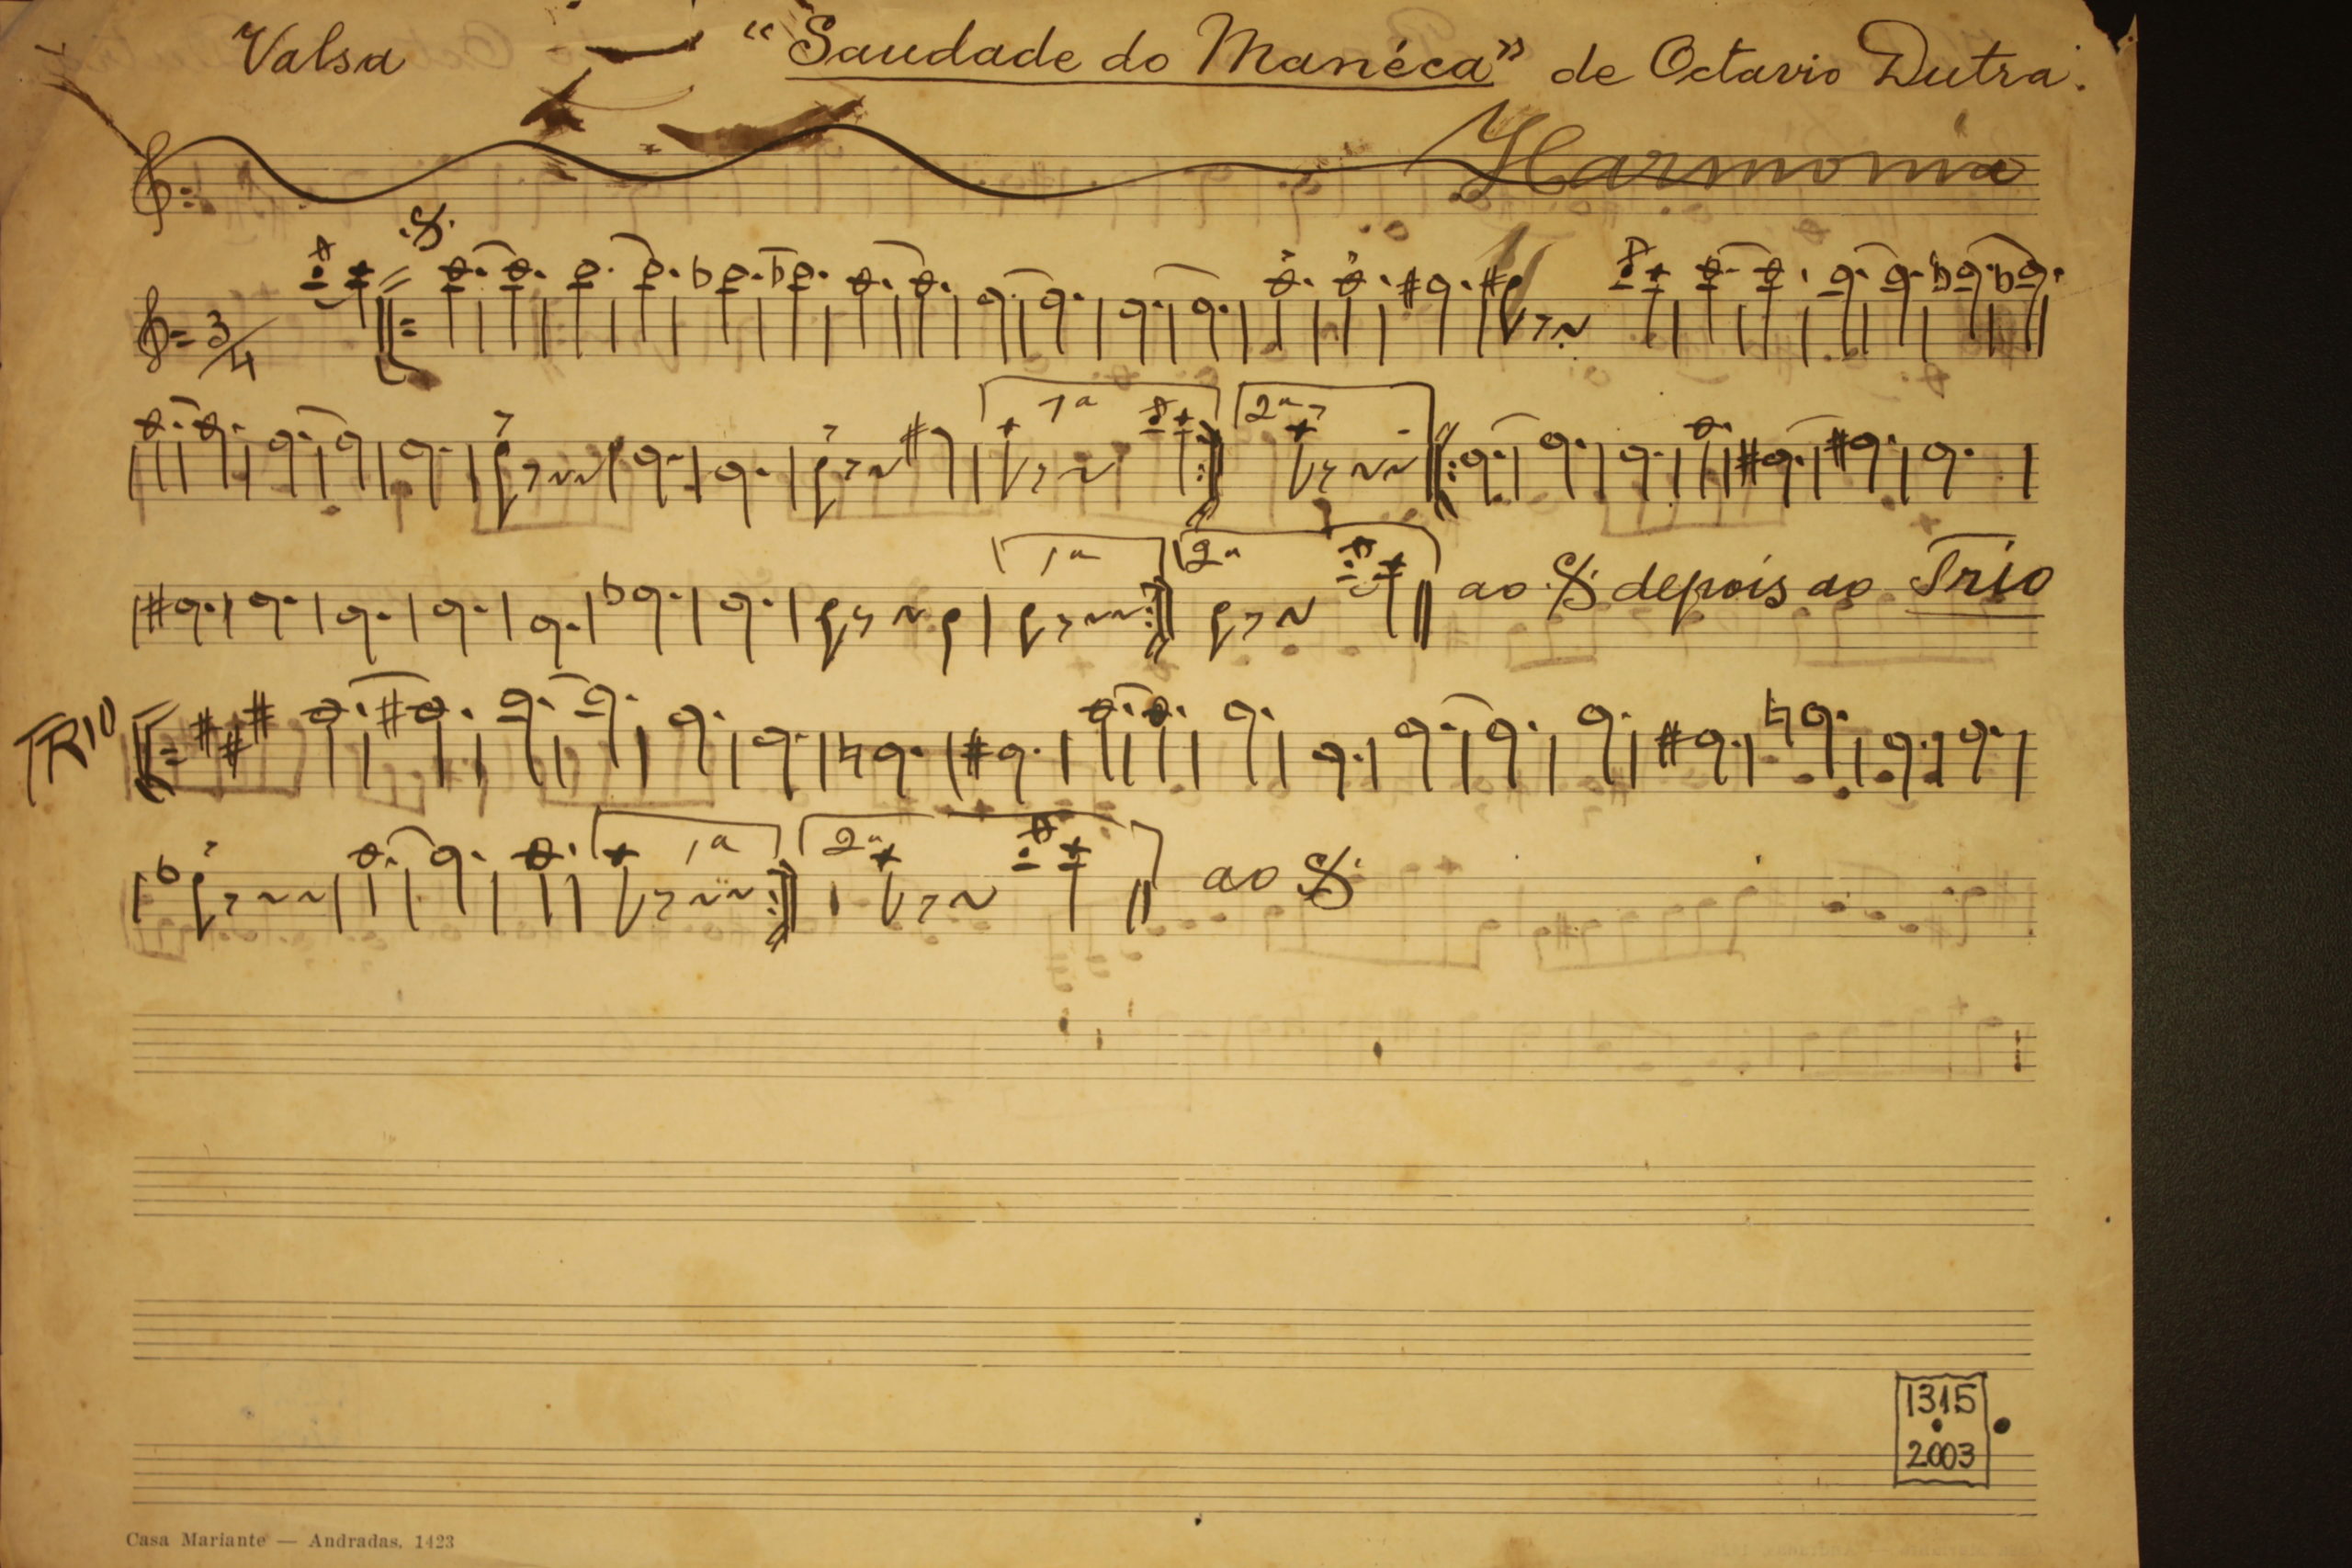 Valsa "Saudade do Manéca" de Octavio Dutra.
Harmonia
3/4
1a 2a
1a 2a ao depois ao Trio
TRIO
1a 2a ao
1315
2003
Casa Mariante — Andradas, 1423